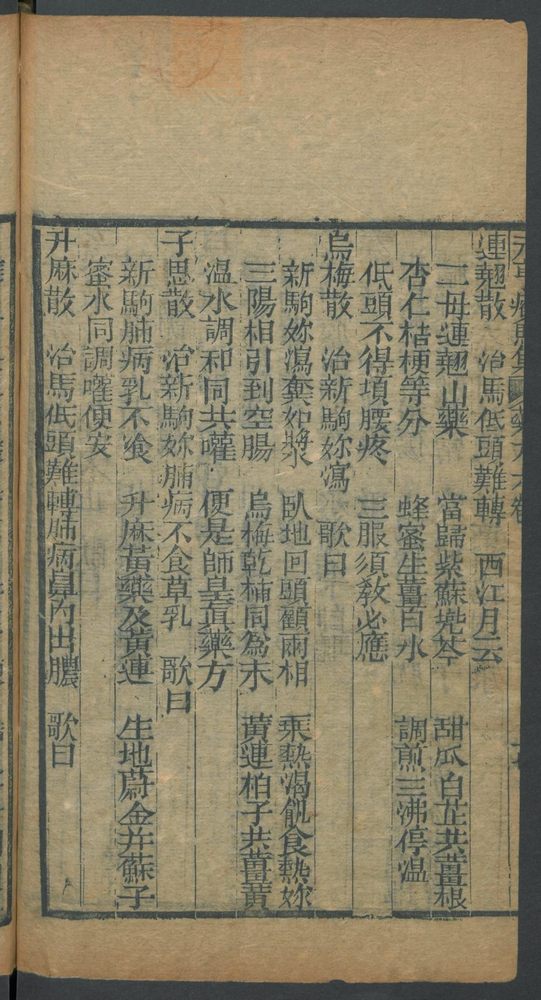 元亨療馬集 六卷
連翹散 治馬低頭難轉 西江月云
二母連翹山藥 當歸紫蘇兠苓 甜瓜白芷共薑根
杏仁桔梗等分 蜂蜜生薑百水 調煎三沸停溫
低頭不得項腰疼 三服須教必應
烏梅散 治新駒妳瀉 歌曰
新駒妳瀉糞如漿 臥地回頭顧兩相 乘熱渴飢食熱妳
三陽相引到空腸 烏梅乾柿同為末 黃連柏子共薑黃
溫水調和同共嚾 便是師皇真藥方
子思散 治新駒妳腩病不食草乳 歌曰
新駒腩病乳不飡 升麻黃藥及黃連 生地蔚金并蘇子
蜜水同調嚾便安
升麻散 治馬低頭難轉肺病鼻內出膿 歌曰